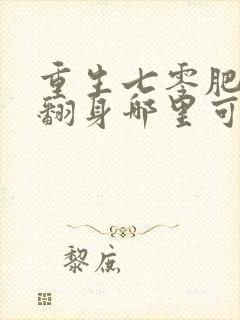 重生七零肥
翻身哪里可
黎底